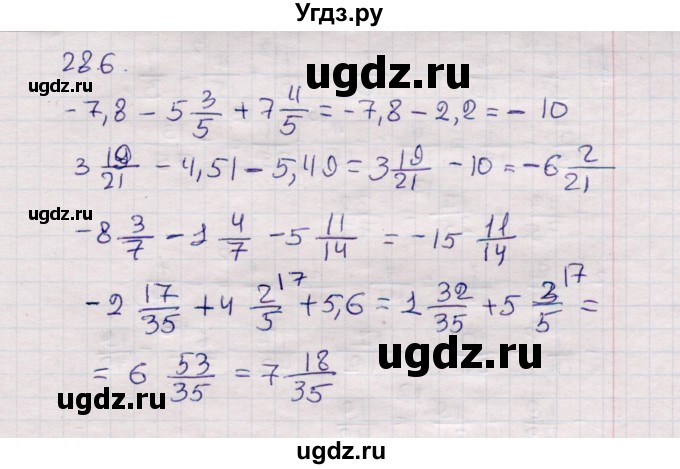 Угдз.ру
286.
ugdz.ru
-7,8 - 5 3/5 + 7 4/5 = -7,8 - 2,2 = - 10
3 19/21 - 4,51 - 5,49 = 3 19/21 - 10 = -6 2/21
ugdz.ru
-8 3/7 - 1 4/7 - 5 11/14 = -15 11/14
-2 17/35 + 4 2/5 ^17 + 5,6 = 1 32/35 + 5 3/5 ^17 =
ugdz.ru
= 6 53/35 = 7 18/35
ugdz.ru
ugdz.ru